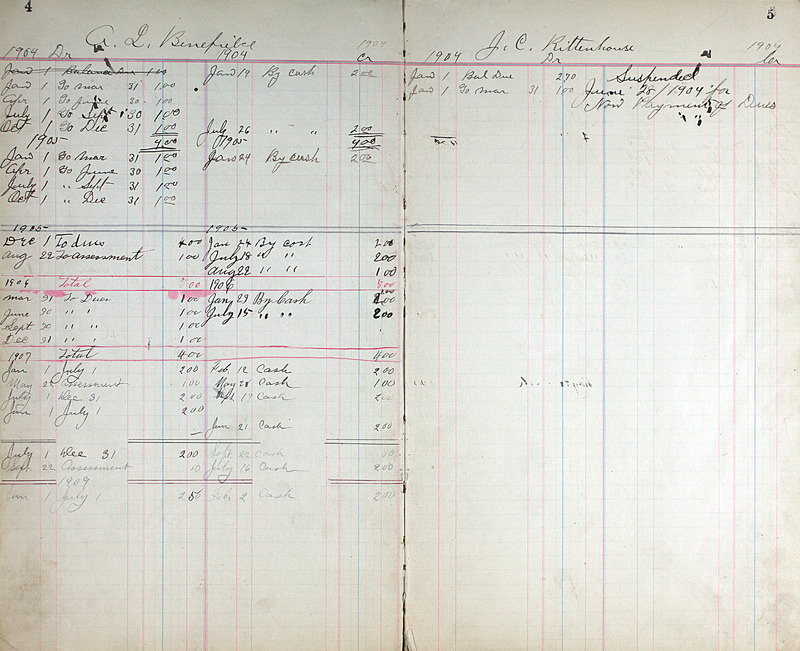 4
1904 Dr 1904 1904 Cr
Jan 1 Balance Due 1 00 Jan 19 By Cash 2 00
Jan 1 To Mar 31 1 00
Apr 1 To June 30 1 00
July 1 To Sept 30 1 00
Oct 1 To Dec 31 1 00 July 26 " " 2 00
4 00 4 00
1905 1905
Jan 1 To Mar 31 1 00 Jan 24 By Cash 2 00
Apr 1 To June 30 1 00
July 1 " Sept 31 1 00
Oct 1 " Dec 31 1 00
1905 1905
Dec 1 To dues 4 00 Jan 24 By Cost 2 00
Aug 22 To Assessment 1 00 July 18 " " 2 00
Aug 22 " " 1 00
Total 5 00
1906
Mar 31 To Dues 1 00 Jany 29 By Cash 2 00
June 30 " " 1 00 July 15 " " 2 00
Sept 30 " " 1 00
Dec 31 " " 1 00
Total 4 00 4 00
1907
Jan 1 July 1 2 00 Feb 12 Cash 2 00
May 22 Assessment 1 00 May 28 Cash 1 00
July 1 Dec 31 2 00 Sept 17 Cash 2 00
Jan 1 July 1 2 00
Jan 21 Cash 2 00
July 1 Dec 31 2 00 Sept 22 Cash
Sept 22 Assessment July 16 Cash 2 00
1909
Jan 1 July 1 2 50 Feb 2 Cash 2 00
5
J. C. Rittenhouse
1904 Dr 1904 Cr
Jan 1 Bal Due 2 70 Suspended
Jan 1 To Mar 31 1 00 June 28/1904 for
Non Payment of Dues